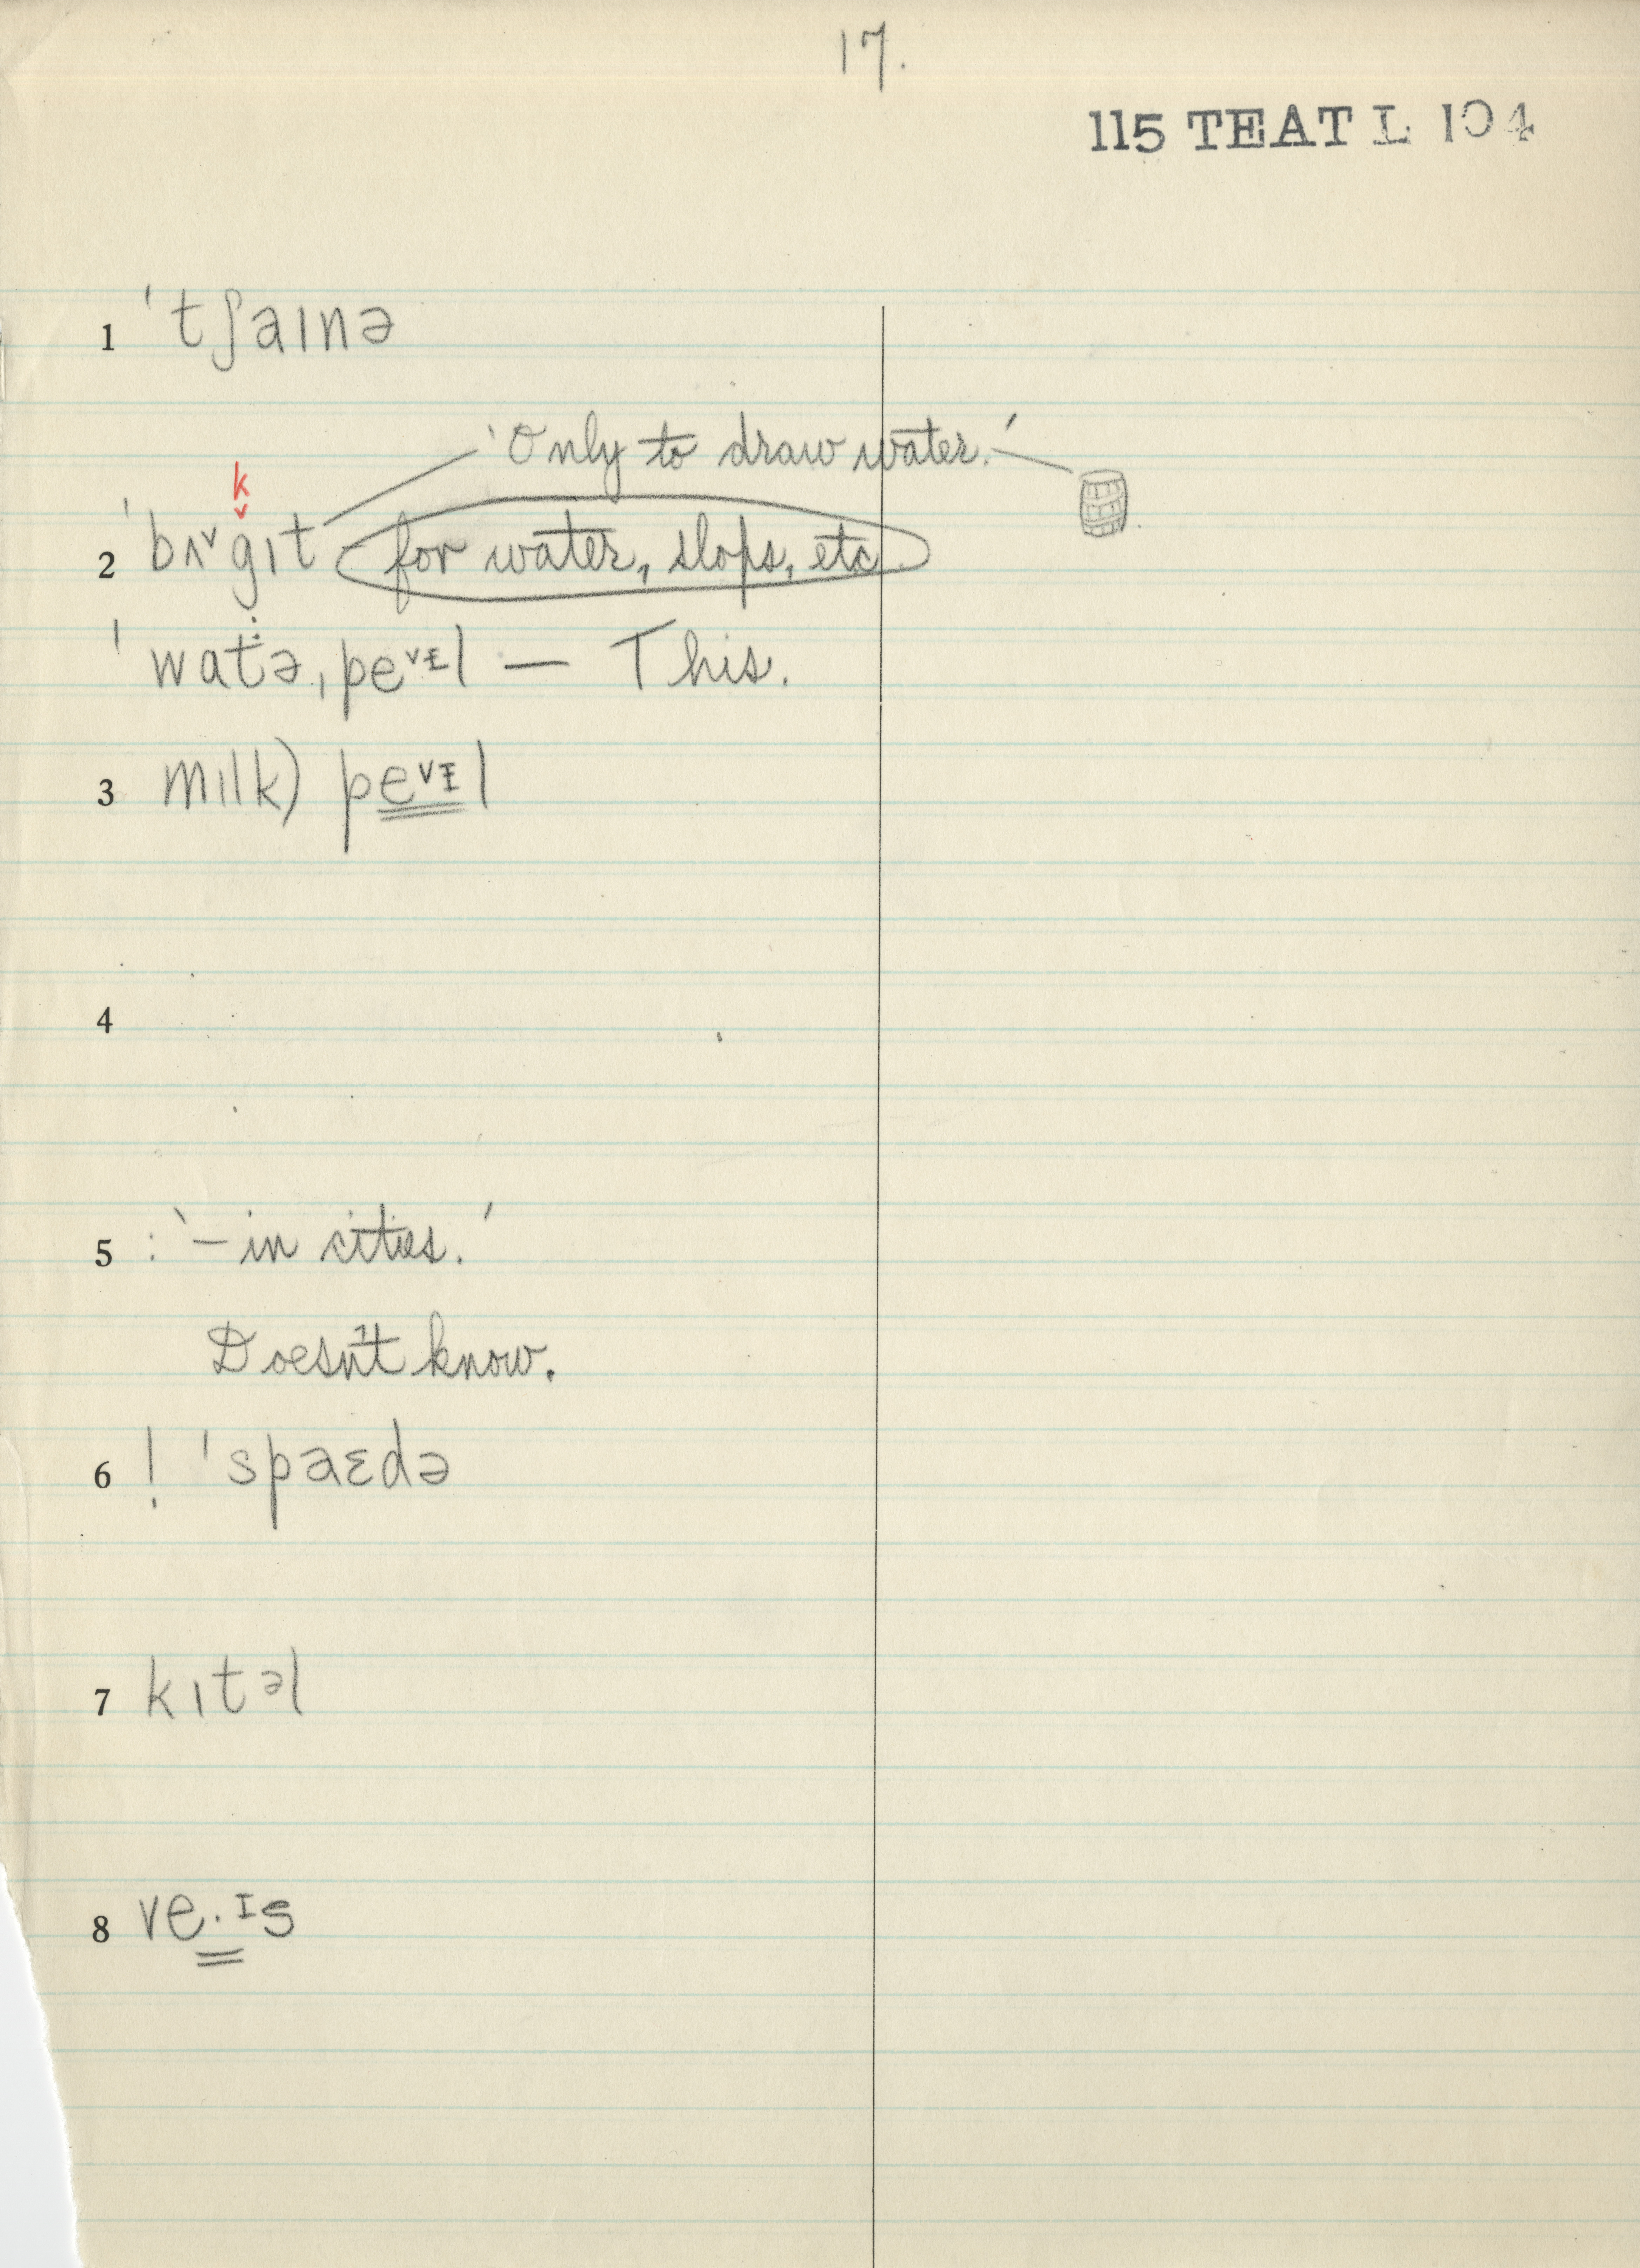 17.
115 TEAT L 104
1 ˈtʃaɪnə
ˋOnly to draw water.ˊ
k
2 ˈbʌ˅gɪt for water, slops, etc.
ˈwatə ˌpe˅ɪl — This.
3 mɪlk) pe˅ɪl
4
5 : ˋ— in cities.ˊ
Doesn't know.
6 ! ˈspaɛdə
7 kɪtəl
8 ve·ɪs